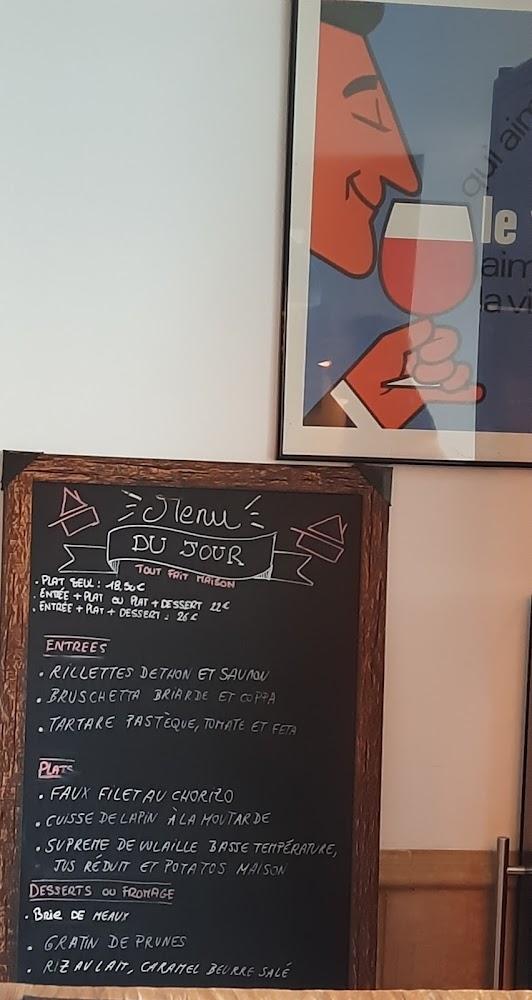 qui aim
le
aim
la vi
Menu
DU JOUR
TOUT FAIT MAISON
. PLAT SEUL : 18,50€
. ENTÉE + PLAT OU PLAT + DESSERT 22€
. ENTRÉE + PLAT + DESSERT : 26€
ENTREES
• RILLETTES DE THON ET SAUMON
• BRUSCHETTA BRIARDE ET COPPA
• TARTARE PASTÈQUE, TOMATE ET FETA
PLATS
• FAUX FILET AU CHORIZO
• CUISSE DE LAPIN À LA MOUTARDE
• SUPREME DE VOLAILLE BASSE TEMPÉRATURE,
JUS RÉDUIT ET POTATOS MAISON
DESSERTS OU FROMAGE
• BRIE DE MEAUX
• GRATIN DE PRUNES
• RIZ AU LAIT, CARAMEL BEURRE SALÉ